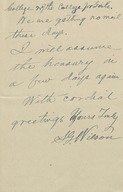 College with the College for Sale.
We are getting normal
these days.
I will assume
the treasury in
a few days again
With cordial
greetings Yours Truly
Wilson